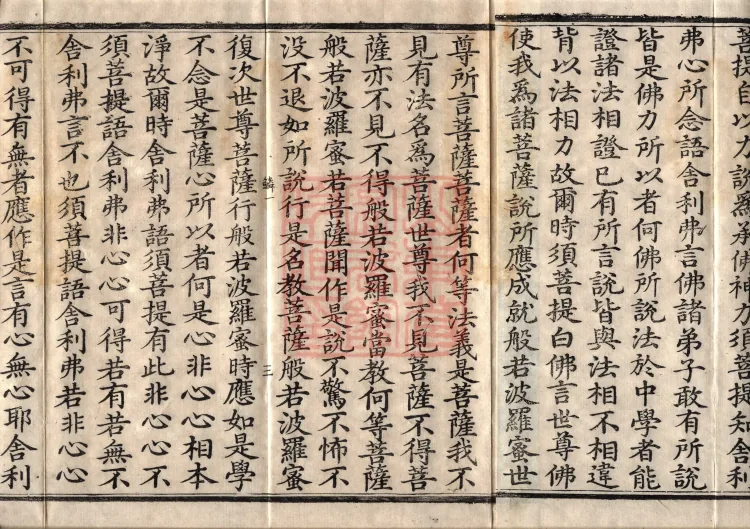 菩提自以力說爲承佛神力須菩提知舍利
弗心所念語舍利弗言佛諸弟子敢有所說
皆是佛力所以者何佛所說法於中學者能
證諸法相證已有所言說皆與法相不相違
背以法相力故爾時須菩提白佛言世尊佛
使我爲諸菩薩說所應成就般若波羅蜜世
尊所言菩薩菩薩者何等法義是菩薩我不
見有法名爲菩薩世尊我不見菩薩不得菩
薩亦不見不得般若波羅蜜當教何等菩薩
般若波羅蜜若菩薩聞作是說不驚不怖不
没不退如所說行是名教菩薩般若波羅蜜
鱗一 三
復次世尊菩薩行般若波羅蜜時應如是學
不念是菩薩心所以者何是心非心心相本
淨故爾時舍利弗語須菩提有此非心心不
須菩提語舍利弗非心心可得若有若無不
舍利弗言不也須菩提語舍利弗若非心心
不可得有無者應作是言有心無心耶舍利